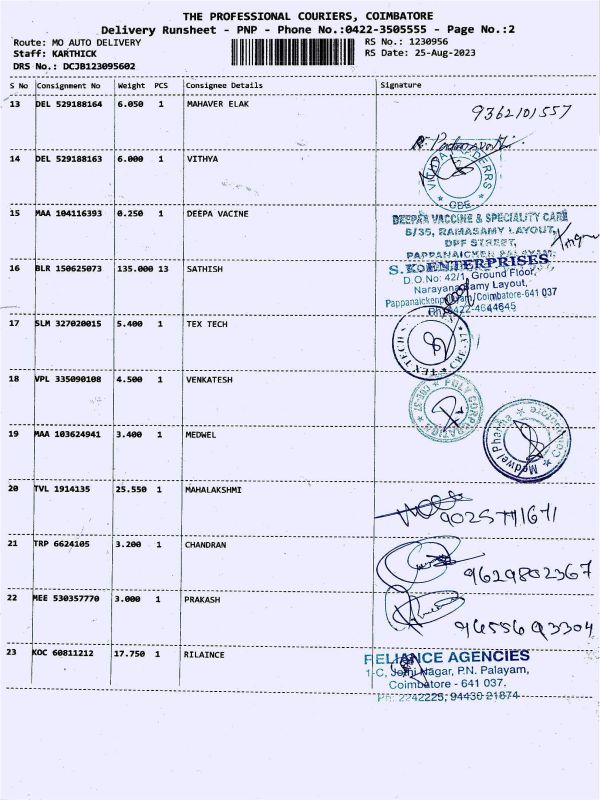 THE PROFESSIONAL COURIERS, COIMBATORE
Delivery Runsheet - PNP - Phone No.:0422-3505555 - Page No.:2
Route: MO AUTO DELIVERY RS No.: 1230956
Staff: KARTHICK RS Date: 25-Aug-2023
DRS No.: DCJB123095602
S No Consignment No Weight PCS Consignee Details Signature
13 DEL 529188164 6.050 1 MAHAVER ELAK
9362101557
14 DEL 529188163 6.000 1 VITHYA
VITHYA TRADERRS
CBE
15 MAA 104116393 0.250 1 DEEPA VACINE
DEEPAM VACCINE & SPECIALITY CARE
5/35, RAMASAMY LAYOUT,
DPF STREET,
PAPPANAICKEN PALAYAM,
16 BLR 150625073 135.000 13 SATHISH
S.K ENTERPRISES
D.O.No: 42/1, Ground Floor,
Narayanasamy Layout,
Pappanaickenpalayam, Coimbatore-641 037
Ph: 0422-4644645
17 SLM 327020015 5.400 1 TEX TECH
TEX TECH
CBE-37
18 VPL 335090108 4.500 1 VENKATESH
POLY CORPORATION
CBE-37
19 MAA 103624941 3.400 1 MEDWEL
Medwel Pharma
20 TVL 1914135 25.550 1 MAHALAKSHMI
21 TRP 6624105 3.200 1 CHANDRAN
9629802367
22 MEE 530357770 3.000 1 PRAKASH
9655693304
23 KOC 60811212 17.750 1 RILAINCE
RELIANCE AGENCIES
1-C, Jothi Nagar, P.N. Palayam,
Coimbatore - 641 037.
Ph: 2242225, 94430 21874